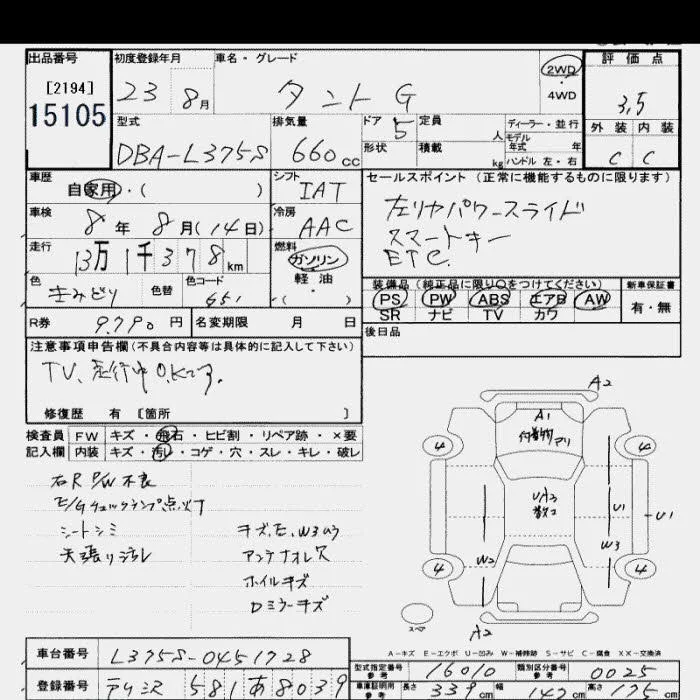 出品番号
[2194]
15105
初度登録年月
23 8月
車名・グレード
タント G
2WD
・
4WD
評価点
3.5
外装 内装
C C
型式
DBA-L375S
排気量
660cc
ドア 5
形状
定員
人
積載
kg
ディーラー・並行
モデル
年式 年
ハンドル 左・右
車歴
自家用・( )
シフト
IAT
セールスポイント (正常に機能するものに限ります)
左リヤパワースライド
スマートキー
ETC.
車検
8年 8月(14日)
冷房
AAC
走行
13万1千378km
燃料
ガソリン
・
軽油
・
( )
色
きみどり
色替
色コード
装備品(純正品に限り○をつけてください)
PS PW ABS エアB AW
SR ナビ TV カワ
新車保証書
有・無
R券
9.790円
名変期限 月 日
後日品
注意事項申告欄(不具合内容等は具体的に記入して下さい)
TV、走行中OKです。
修復歴 有 [箇所 ]
検査員
記入欄
FW キズ・飛石・ヒビ割・リペア跡・×要
内装 キズ・汚レ・コゲ・穴・スレ・キレ・破レ
右R P/W不良
E/Gチェックランプ点灯
シートシミ
天張り汚レ
キズ、E、W3あり
アンテナオレ欠
ホイルキズ
Dミラーキズ
A2
A1
付着物
アリ
4
4
U/A3
数コ
U1
U1
W2
W3
4
4
スペア
A2
A-キズ E-エクボ U-凹み W-補修跡 S-サビ C-腐食 XX-交換済
車台番号
L375S-0451728
型式指定番号
参考
16010
類別区分番号
参考
0025
登録番号
581あ8039
車庫証明用
参考
長さ
339cm
幅
142cm
高さ
175cm